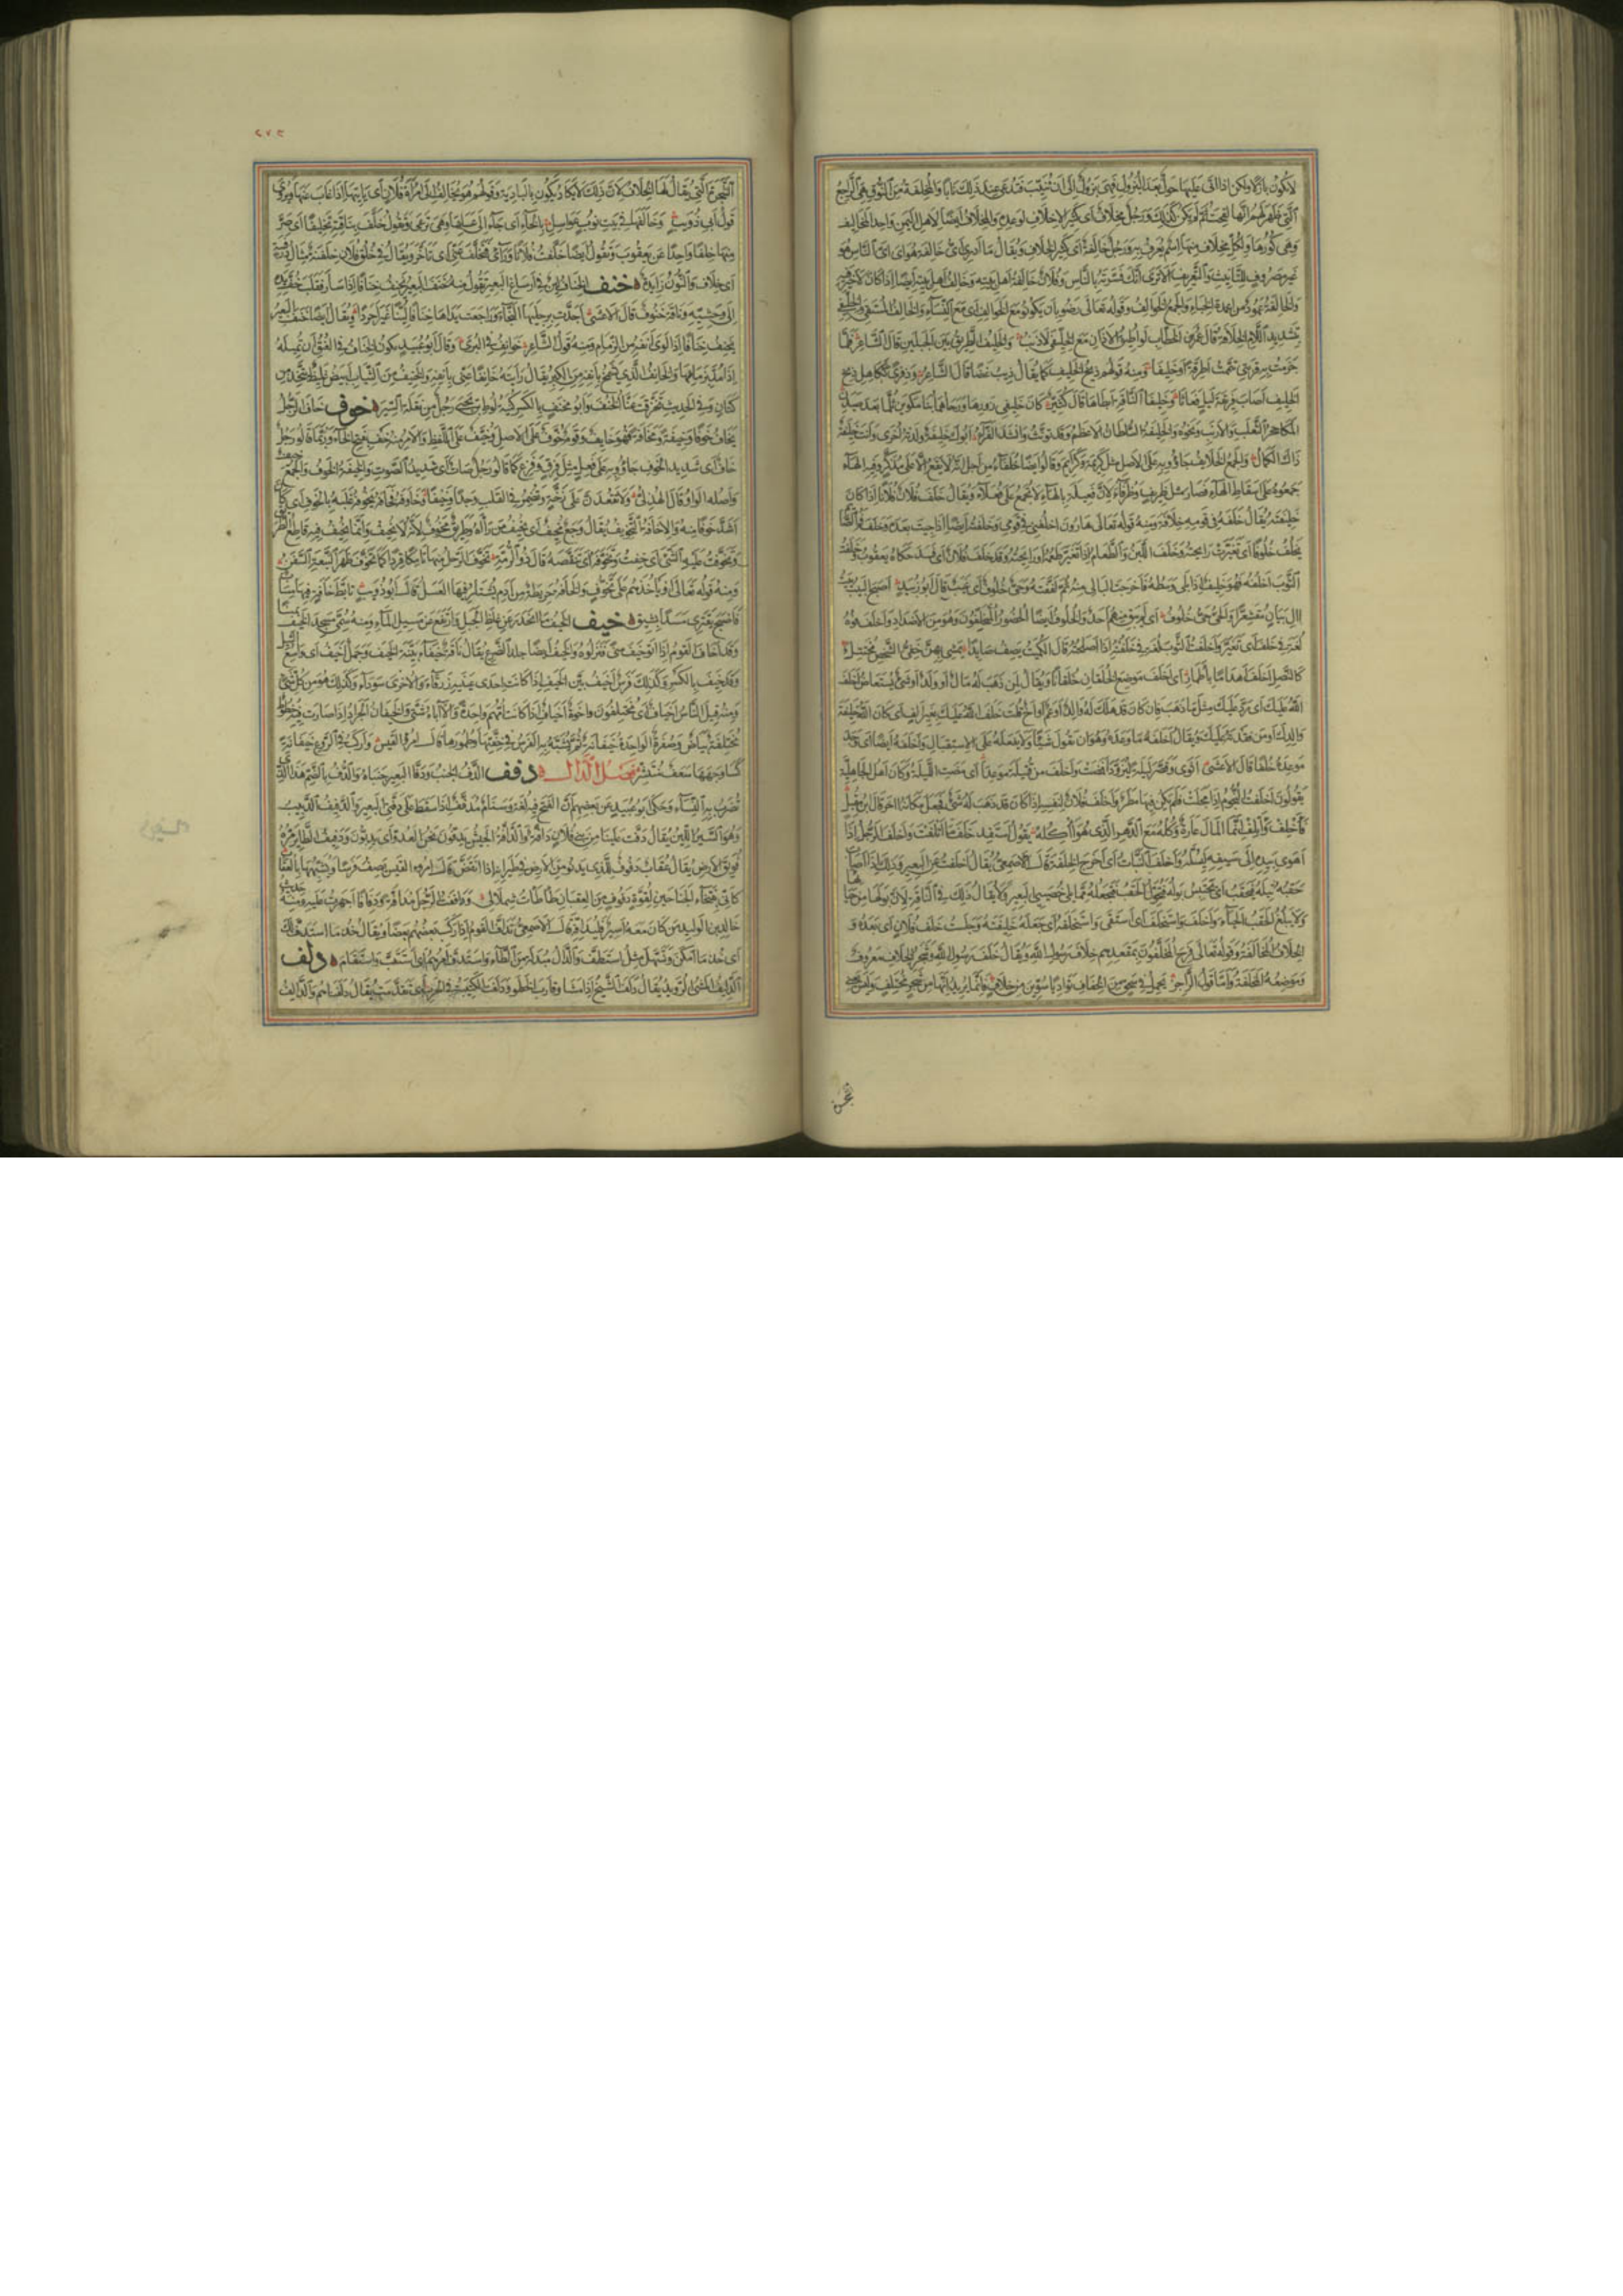 لا تكون بازلا ولكن اذا اتى عليها حول بعد البزول فهى بزول الى ان تنيب فتدعى عند ذلك نابا والمخلفة من النوق هى الراجع
التى ظهر لهم انها لقحت ثم لم تكن كذلك ورجل مخلاف اى كثير الاخلاف لوعده والمخلاف ايضا لاهل اليمن واحد المخاليف
وهى كورها ولكل مخلاف منها اسم يعرف به ورجل خالفة اى كثير الخلاف ويقال ما ادرى اى خالفة هو اى اى الناس هو
غير مصروف للتانيث والتعريف الا ترى انك فسرته بالناس وفلان خالفة اهل بيته وخالف اهل بيته ايضا اذا كان لا خير فيه
والخالفة عمود من اعمدة الخباء والجمع الخوالف وقوله تعالى رضوا بان يكونوا مع الخوالف اى مع النساء والخالف المستقى والخليفى
بتشديد اللام الخلافة قال عمر بن الخطاب لو اطيق الاذان مع الخليفى لاذنت والخليف الطريق بين الجبلين قال الشاعر فلما
جزمت به قربتى تيممت اطرقة او خليفا ومنه قولهم ذيخ الخليف كما يقال ذيب غضا قال الشاعر وذفرى ككاهل ذيخ
الخليف اصاب فريقة ليل فعاثا وخليفا الناقة ابطاها قال كثير كان خليفى زورها ورحاهما بنا مكوين ثلما بعد صيدن
المكا جحر الثعلب والارنب ونحوه والخليفة السلطان الاعظم وقد يونث وانشد الفراء ابوك خليفة ولدته اخرى وانت خليفة
ذاك الكمال والجمع الخلايف جاؤوا به على الاصل مثل كريمة وكرايم وقالوا ايضا خلفاء من اجل انه لا يقع الا على مذكر وفيه الهاء
جمعوه على اسقاط الهاء فصار مثل ظريف وظرفاء لان فعيلة بالهاء لا تجمع على فعلاء ويقال خلف فلان فلانا اذا كان
خليفته يقال خلفه فى قومه خلافة ومنه قوله تعالى هارون اخلفنى فى قومى وخلفته ايضا اذا جيت بعده وخلف فم الصايم
يخلف خلوفا اى تغيرت رايحته وخلف اللبن والطعام اذا تغير طعمه او رايحته وقد خلف فلان اى فسد حكاه يعقوب وخلفت
الثوب اخلفه فهو خليف اذا بلى وسطه فاخرجت البالى منه ثم لفقته وحى خلوف اى غيب قال ابو زبيد اصبح البيت بيت
ال بيان مقشعرا والحى حى خلوف اى لم يبق منهم احد والخلوف ايضا الحضور المتخلفون وهو من الاضداد واخلف فوه
لغة فى خلف اى تغير واخلفت الثوب لغة فى خلفته اذا اصلحته قال الكميت يصف صايدا يمشى بهن خفى الشخص مختتل
كالنصل اخلف اهداما باطمار اى اخلف موضع الخلقان خلقانا ويقال لمن ذهب له مال او ولد او شىء يستعاض اخلف
الله عليك اى رد عليك مثل ما ذهب فان كان قد هلك له والد او عم او اخ قلت خلف الله عليك بغير الف اى كان الله خليفة
والدك او من فقدته عليك ويقال اخلفه ما وعده وهو ان يقول شيا ولا يفعله على الاستقبال واخلفه ايضا اى وجد
موعده خلفا قال الاعشى اثوى وقصر ليله ليزودا فمضت واخلف من قتيلة موعدا اى مضت الليلة وكان اهل الجاهلية
يقولون اخلفت النجوم اذا محلت فلم يكن فيها مطر واخلف فلان لنفسه اذا كان قد ذهب له شىء فجعل مكانه اخر قال ابن مقبل
فاخلف واتلف انما المال عارة وكله مع الدهر الذى هو اكله يقول استفد خلف ما اتلفت واخلف الرجل اذا
اهوى بيده الى سيفه ليسله واخلف النبات اى اخرج الخلفة قال الاصمعى يقال اخلفت عن البعير وذلك اذا اصاب
حقبه ثيله فيحقب اى يحتبس بوله فتحول الحقب فتجعله مما يلى خصيى البعير ولا يقال ذلك فى الناقة لان بولها من حيايها
ولا يبلغ الحقب الحياء واخلف واستخلف اى استقى واستخلفه اى جعله خليفته وجلست خلف فلان اى بعده و
الخلاف المخالفة وقوله تعالى فرح المخلفون بمقعدهم خلاف رسول الله ويقال خلف رسول الله وشجر الخلاف معروف
وموضعه المخلفة واما قول الراجز يحمل فى سحق من الخفاف تواديا سوين من خلاف فانما يريد انها من شجر مختلف وليس يعنى
شجرة
٢٧٥
الشجرة التى يقال لها الخلاف لان ذلك لا يكاد يكون بالبادية وقولهم هو يخالف الى امراة فلان اى ياتيها اذا غاب عنها ويروى
قول ابى ذويب وخالفها فى بيت نوب عواسل بالخاء اى جاء الى عسلها وهى ترعى وتقول خلف بناقته تخليفا اى صر
منها خلفا واحدا عن يعقوب وتقول ايضا خلفت فلانا وراى فتخلف عنى اى تاخر ويقال فى خلق فلان خلفنة مثال درفسة
اى خلاف والنون زايدة خنف الخناف لين فى ارساغ البعير تقول منه خنف البعير يخنف خنافا اذا سار فقلب خف يده
الى وحشيه وناقة خنوف قال الاعشى اجدت برجليها النجاء وراجعت يداها خنافا لينا غير اجردا ويقال ايضا خنف البعير
يخنف خنافا اذا لوى انفه من الزمام ومنه قول الشاعر خوانف فى البرى وقال ابو عبيد يكون الخناف فى العنق ان تميله
اذا مد بزمامها والخانف الذى يشمخ بانفه من الكبر يقال رايته خانفا عنى بانفه والخنيف من الثياب ابيض غليظ يتخذ من
كتان وفى الحديث تخرقت عنا الخنف وابو مخنف بالكسر كنية لوط بن يحيى رجل من نقلة السير خوف خاف الرجل
يخاف خوفا وخيفة ومخافة فهو خايف وقوم خوف على الاصل وخيف على اللفظ والامر منه خف بفتح الخاء وربما قالوا رجل
خاف اى شديد الخوف جاؤوا به على فعل مثل فرق وفزع كما قالوا رجل صات اى شديد الصوت والخيفة الخوف والجمع خيف
واصله الواو قال الهذلى ولا تقعدن على زخة وتضمر فى القلب وجدا وخيفا وخاوفه فخافه يخوفه غلبه بالخوف اى كان
اشد خوفا منه والاخافة التخويف يقال وجع مخيف اى يخيف من راه وطريق مخوف لانه لا يخيف وانما يخيف فيه قاطع الطريق
وتخوفت عليه الشى اى خفت وتخوفه اى تنقصه قال ذو الرمة تخوف الرحل منها تامكا قردا كما تخوف ظهر النبعة السفن
ومنه قوله تعالى او ياخذهم على تخوف والخافة خريطة من ادم يشتار فيها العسل قال ابو ذويب تابط خافة فيها مساب
فاصبح يقترى مسدا بشيق خيف الخيف ما انحدر عن غلظ الجبل وارتفع عن مسيل الماء ومنه سمى مسجد الخيف بمنى
وقد اخاف القوم اذا اتوا خيف منى فنزلوه والخيف ايضا جلد الضرع يقال ناقة خيفاء بينة الخيف وجمل اخيف اى واسع الثيل
وقد خيف بالكسر وكذلك فرس اخيف بين الخيف اذا كانت احدى عينيه زرقاء والاخرى سوداء وكذلك هو من كل شىء
ومنه قيل الناس اخياف اى مختلفون واخوة اخياف اذا كانت امهم واحدة والاباء شتى والخيفان الجراد اذا صارت فيه خطوط
مختلفة بياض وصفرة الواحدة خيفانة ثم تشبه به الفرس فى خفتها وطمورها قال امرؤ القيس واركب فى الروع خيفانة
كسا وجهها سعف منتشر فصل الدال دفف الدف الجنب ودفا البعير جنباه والدف بالضم هذا الذى
تضرب به النساء وحكى ابو عبيد عن بعضهم ان الفتح فيه لغة وسنام مدفف اذا سقط على دفى البعير والدفيف الدبيب
وهو السير اللين يقال دفت علينا من بنى فلان دافة والدافة الجيش يدفون نحو العدو اى يدبون ودفيف الطاير مره
فويق الارض يقال عقاب دفوف للذى يدنو من الارض فى طيرانه اذا انقض قال امرؤ القيس يصف فرسا ويشبهها بالعقاب
كانى بفتخاء الجناحين لقوة دفوف من العقبان طاطات شملالى ودافعت الرجل مدافة ودفافا اجهزت عليه ومنه حديث
خالد بن الوليد من كان معه اسير فليدافه قال الاصمعى تداف القوم اذا ركب بعضهم بعضا ويقال خذ ما استدف لك
اى خذ ما امكن وتسهل مثل استطف والدال مبدلة من الطاء واستدف امرهم اى استتب واستقام دلف
الدليف المشى الرويد يقال دلف الشيخ اذا مشى وقارب الخطو ودلفت الكتيبة فى الحرب اى تقدمت يقال دلفناهم والدالف